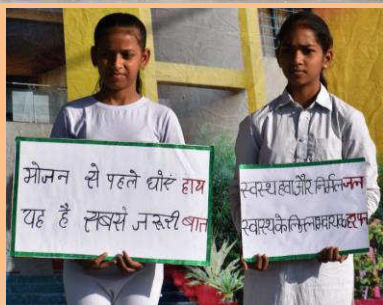 भोजन से पहले धोएं हाथ
यह है सबसे जरूरी बात
स्वस्थ हवा और निर्मल जल
स्वास्थ के लिए